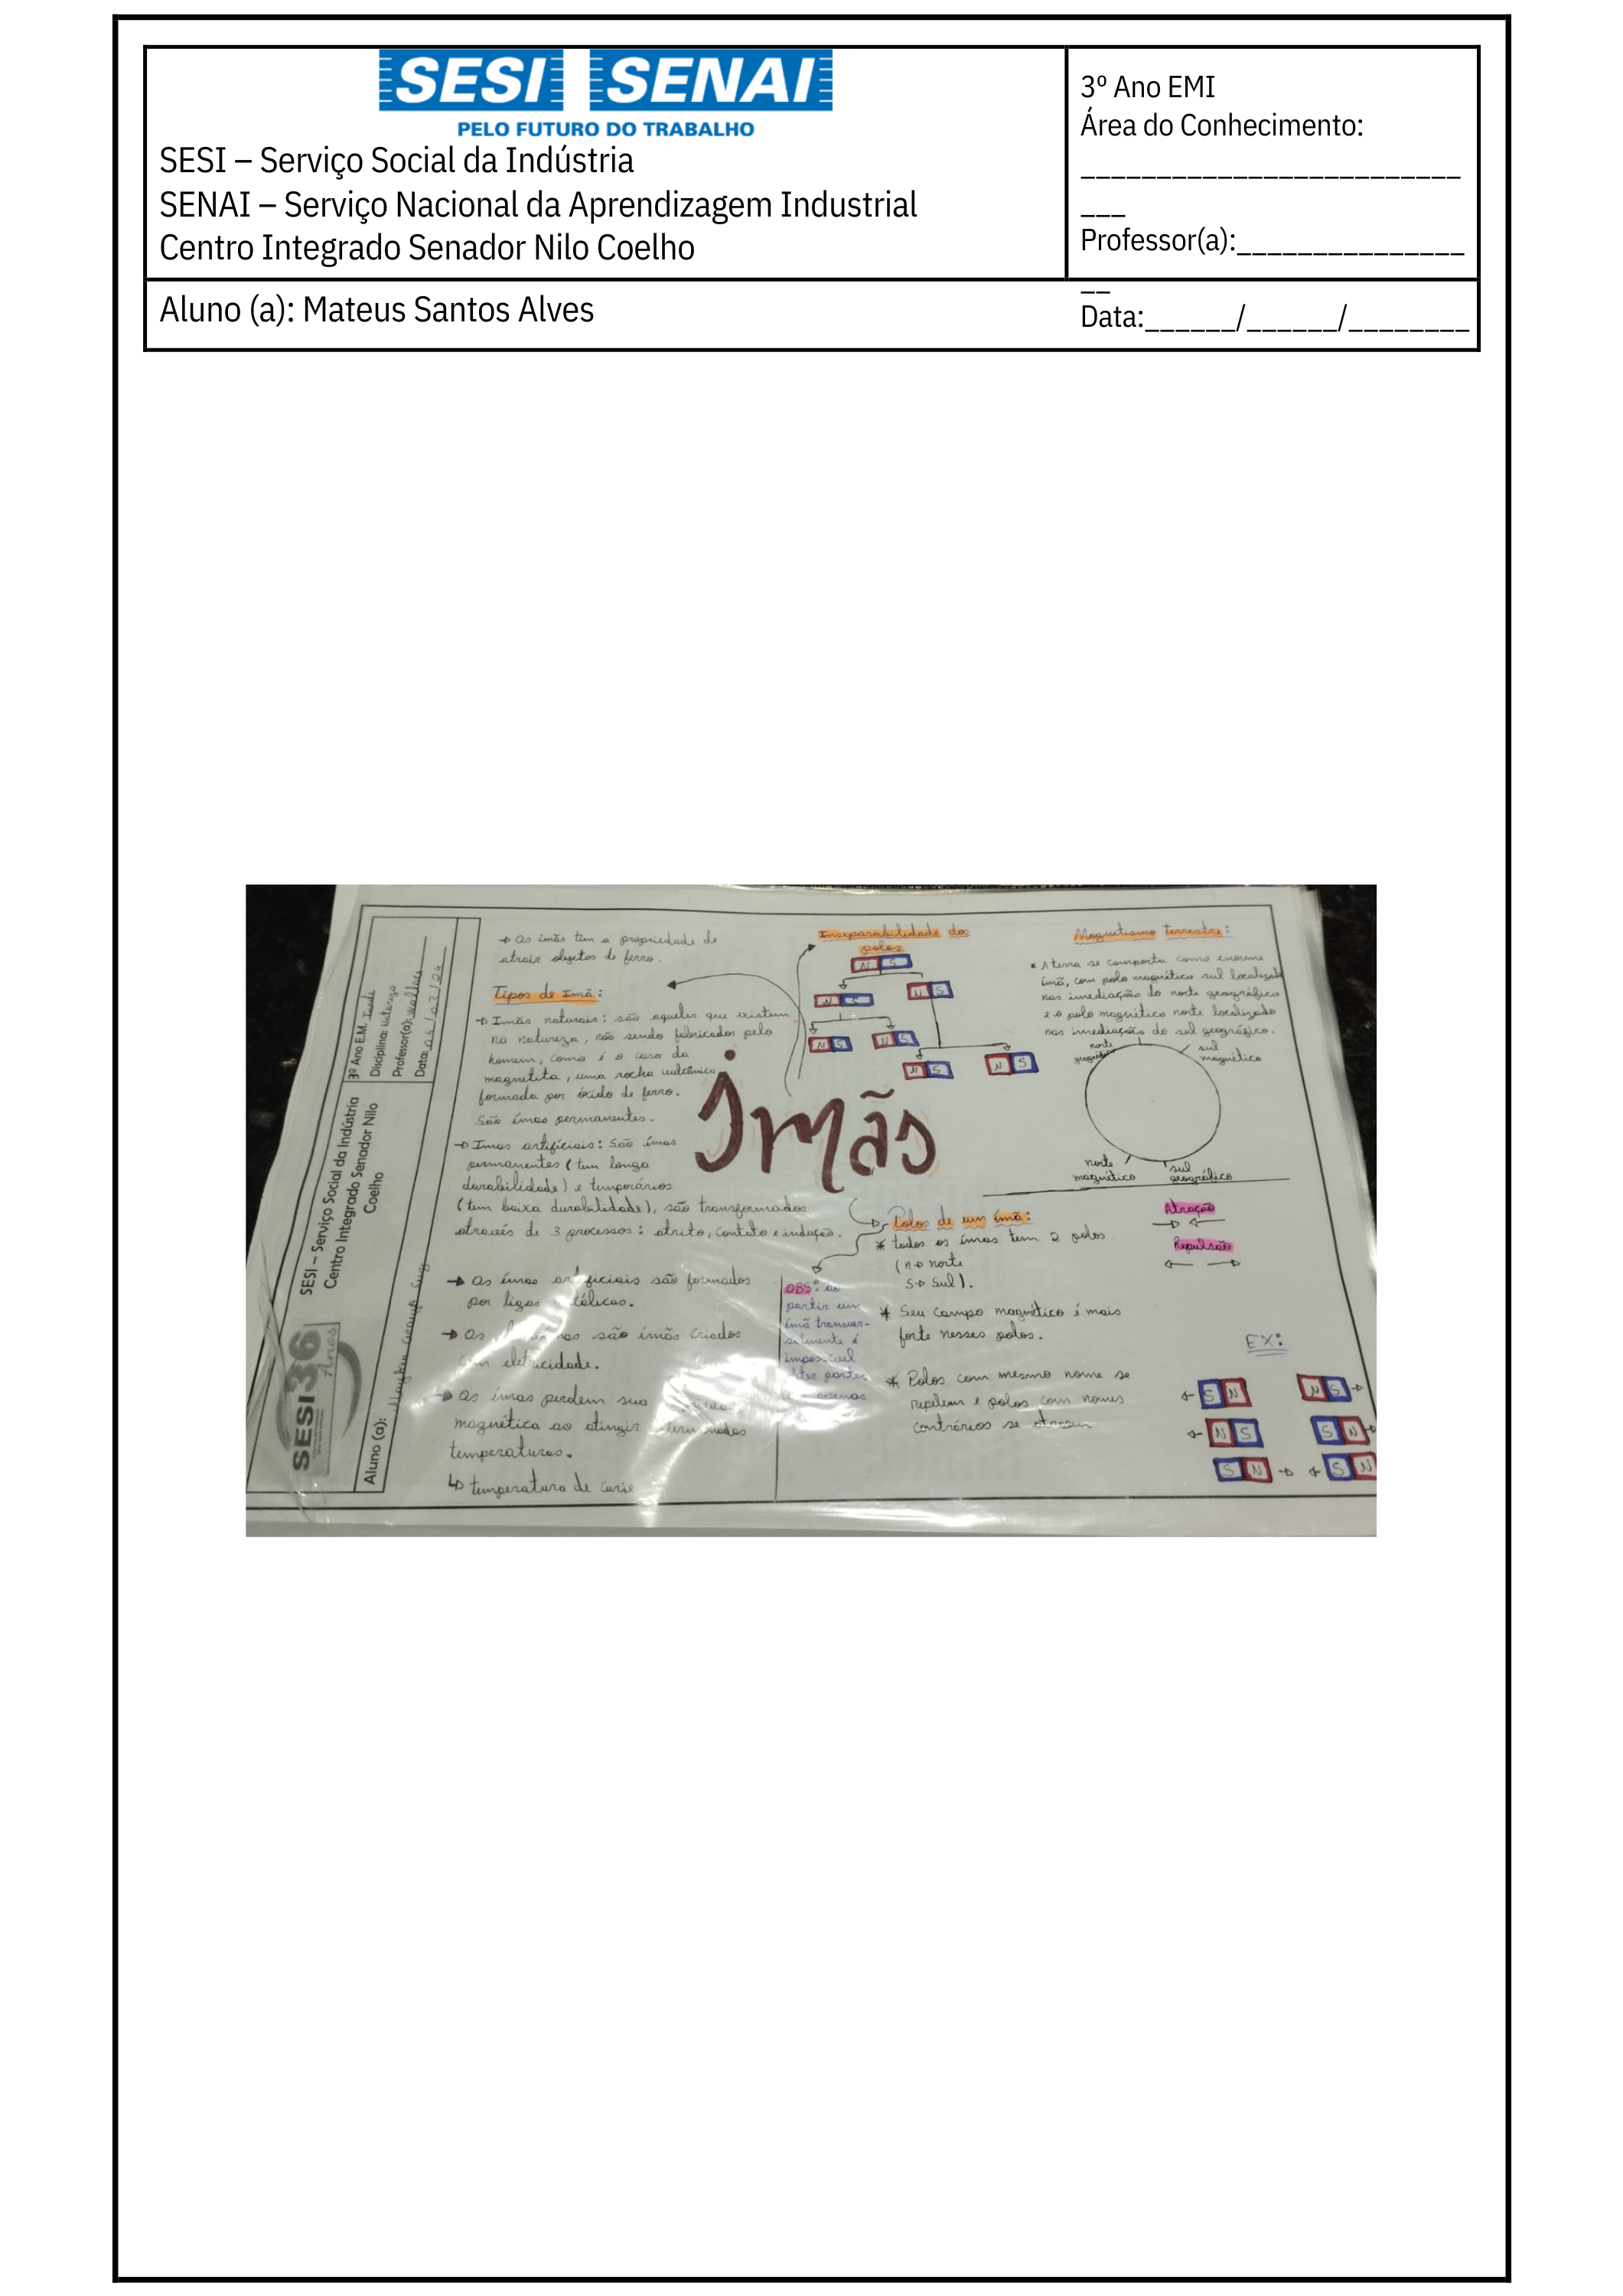 SESI SENAI
PELO FUTURO DO TRABALHO
SESI – Serviço Social da Indústria
SENAI – Serviço Nacional da Aprendizagem Industrial
Centro Integrado Senador Nilo Coelho
3º Ano EMI
Área do Conhecimento:
_________________________
___
Professor(a):_______________
__
Data:______/______/________
Aluno (a): Mateus Santos Alves
SESI – Serviço Social da Indústria
Centro Integrado Senador Nilo
Coelho
3º Ano E.M.
Disciplina:
Professor(a):
Data: 04/03/24
SESI 36 Anos
Aluno (a):
→ As ímãs têm a propriedade de
atrair objetos de ferro.
Tipos de Imã:
→ Imãs naturais: são aqueles que existem
na natureza, não sendo fabricados pelo
homem, como é o caso da
magnetita, uma rocha vulcânica
formada por óxido de ferro.
São ímas permanentes.
→ Imas artificiais: São ímas
permanentes (tem longa
durabilidade) e temporários
(tem baixa durabilidade), são transformados
através de 3 processos: atrito, contato e indução.
→ As ímas artificiais são formados
por ligas
→ As são ímãs criados
eletricidade.
→ As ímas perdem sua
magnética ao atingir
temperaturas.
↳ temperatura de curie
Imãs
Inseparabilidade dos
polos
N S
N S N S
N S N S
N S N S
Magnetismo terrestre:
* A terra se comporta como enorme
ímã, com polo magnético sul localizado
nas imediações do norte geográfico
e o polo magnético norte localizado
nas imediações do sul geográfico.
norte
geográfico
sul
magnético
norte
magnético
sul
geográfico
Polos de um ímã:
* todos os ímas tem 2 polos
(n→ norte
S→ Sul).
* Seu campo magnético é mais
forte nesses polos.
* Polos com mesmo nome se
repelem e polos com nomes
contrários se atraem
OBS: ao
partir um
ímã transver-
salmente é
impossível
obter partes
Atração
→ ←
Repulsão
← →
EX:
← S N N S →
← N S S N →
S N → ← S N